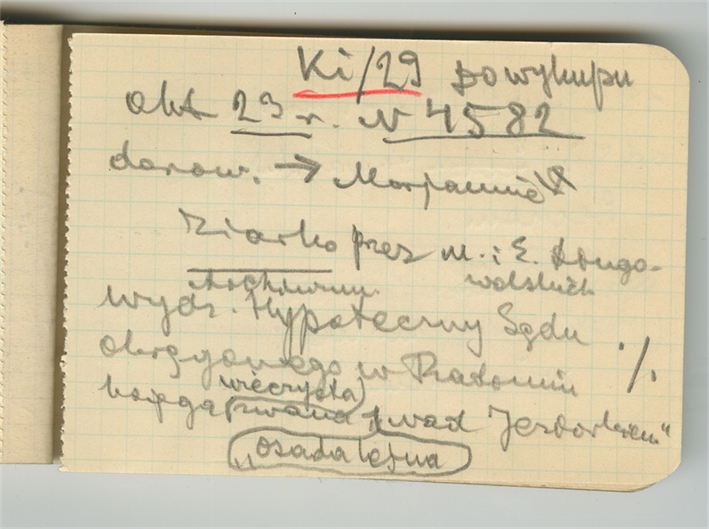 Ki/29 Do wykupu
akt 23 r. N 4582
darow. → Marjannie
Ziarko przez M. i E. Długo-
Archiwum. wolskich
wydz. Hypoteczny Sądu
okręgowego w Radomiu ·/.
wieczysta
księga zwana „nad Jeziorkiem"
„osada leśna